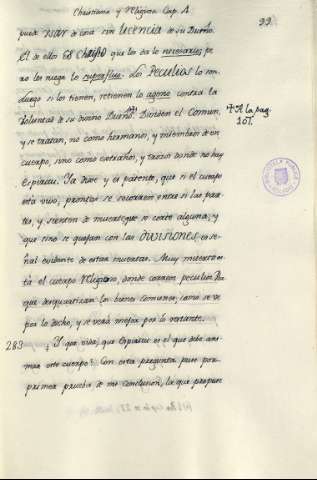 Christiana y Religiosa Cap. A.
99.
pueda usar de cosa sin licencia de su Dueño.
El de ellos es Christo que les da lo necesario, pe
ro les niega lo superfluo. Los Peculios lo son.
Luego si los tienen, retienen lo ageno contra la
voluntad de su divino Dueño. Dividen el Comun,
y se tratan, no como hermanos, y miembros de un
cuerpo, sino como extraños, y tarros donde no hay
Espiritu. Ya dixe y es patente, que si el cuerpo
está vivo, promptos se socorren entre si las par
tes, y sienten de muerte que se corte alguna, y
que sino se quejan con las divisiones, es se
ñal evidente de estar muertas. Muy muerto es
tá el cuerpo Religioso, donde corren peculios Por
que desquartizan los bienes comunes, como se ve
por lo dicho, y se verá mejor por lo restante.
283 ¿Y que viva, que Espiritu es el que debe ani
mar este cuerpo? Con esta pregunta puse por
primera prueba de mi conclusion, la que propuse
A la pag.
101.